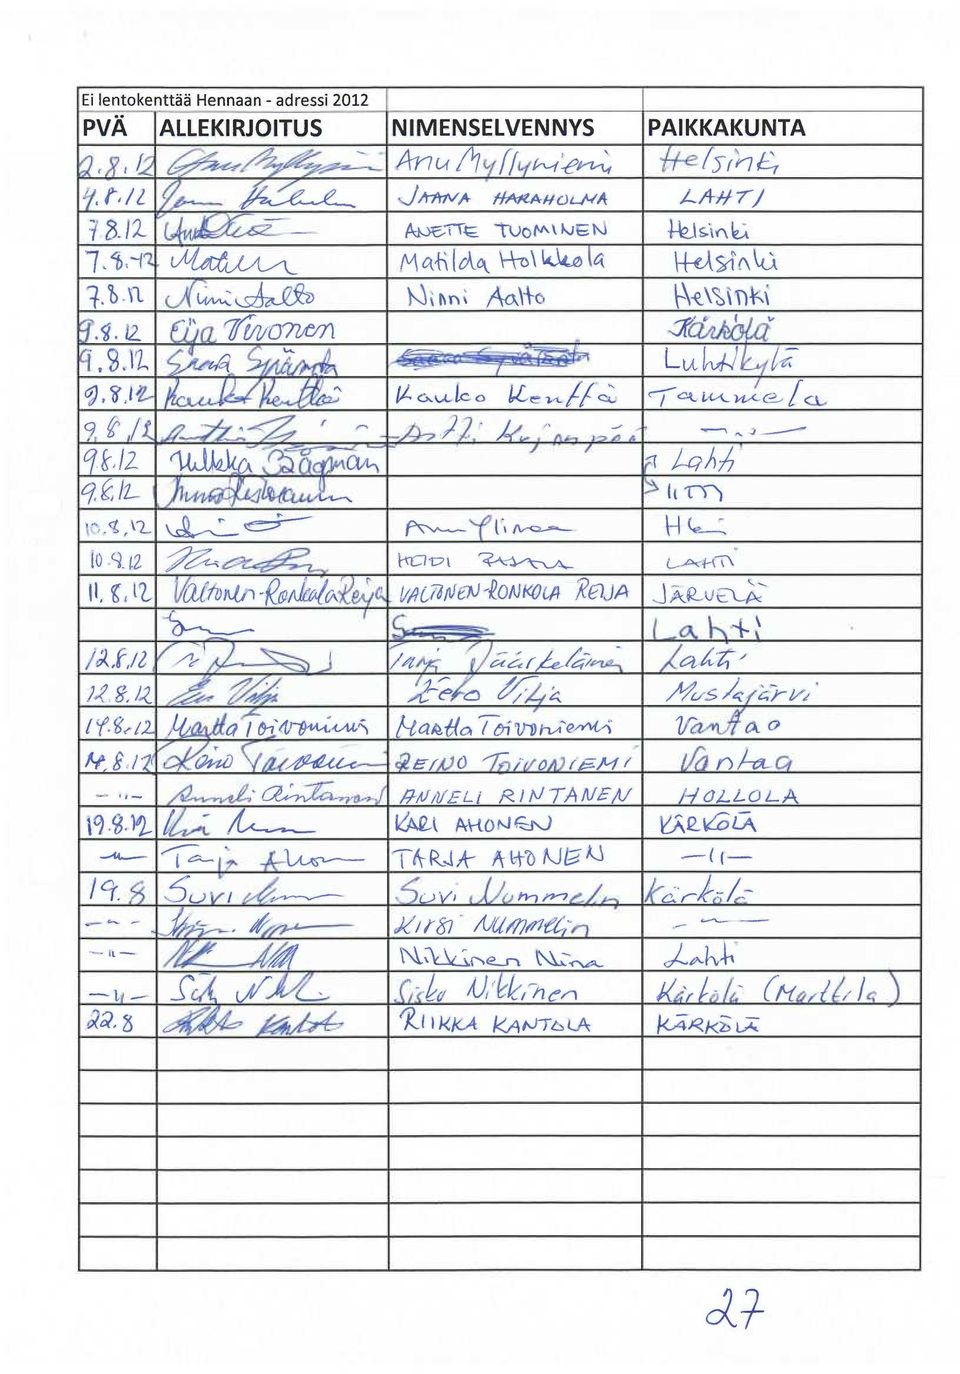 Ei lentokenttää Hennaan - adressi 2012
PVÄ ALLEKIRJOITUS NIMENSELVENNYS PAIKKAKUNTA
2.8.12 Anu Myllyniemi Helsinki
4.8.12 JAANA HARAHOLMA LAHTI
7.8.12 ANETTE TUOMINEN Helsinki
7.8.-12 Matilda Holkkola Helsinki
7.8.12 Ninni Aalto Ninni Aalto Helsinki
9.8.12 Eija Tirronen Kärkölä
9.8.12 Luhtikylä
9.8.12 Kauko Kenttä Kauko Kenttä Tammela
9.8.12 Antti — " —
9.8.12 Hilkka Bägman Lahti
9.8.12
10.8.12 Anu Ylinen Hki
10.8.12 HEIDI LAHTI
11.8.12 Valtonen-Ronkola Reija VALTONEN-RONKOLA REIJA JÄRVELÄ
Lahti
12.8.12 Tarja Jääskeläinen Lahti
12.8.12 Eero Vilja Mustajärvi
14.8.12 Martta Toivoniemi Martta Toivoniemi Vantaa
14.8.12 Reino Toivoniemi REINO TOIVONIEMI Vantaa
— " — Anneli Rintanen ANNELI RINTANEN HOLLOLA
19.8.12 KARI AHONEN KÄRKÖLÄ
— " — Tarja Ahonen TARJA AHONEN — " —
19.8 Suvi Nummelin Suvi Nummelin Kärkölä
— " — Kirsi Nummelin — " —
— " — Nikkinen Nina Lahti
— " — Sisko Nikkinen Kärkölä (Marttila)
22.8 RIIKKA KANTOLA KÄRKÖLÄ
27